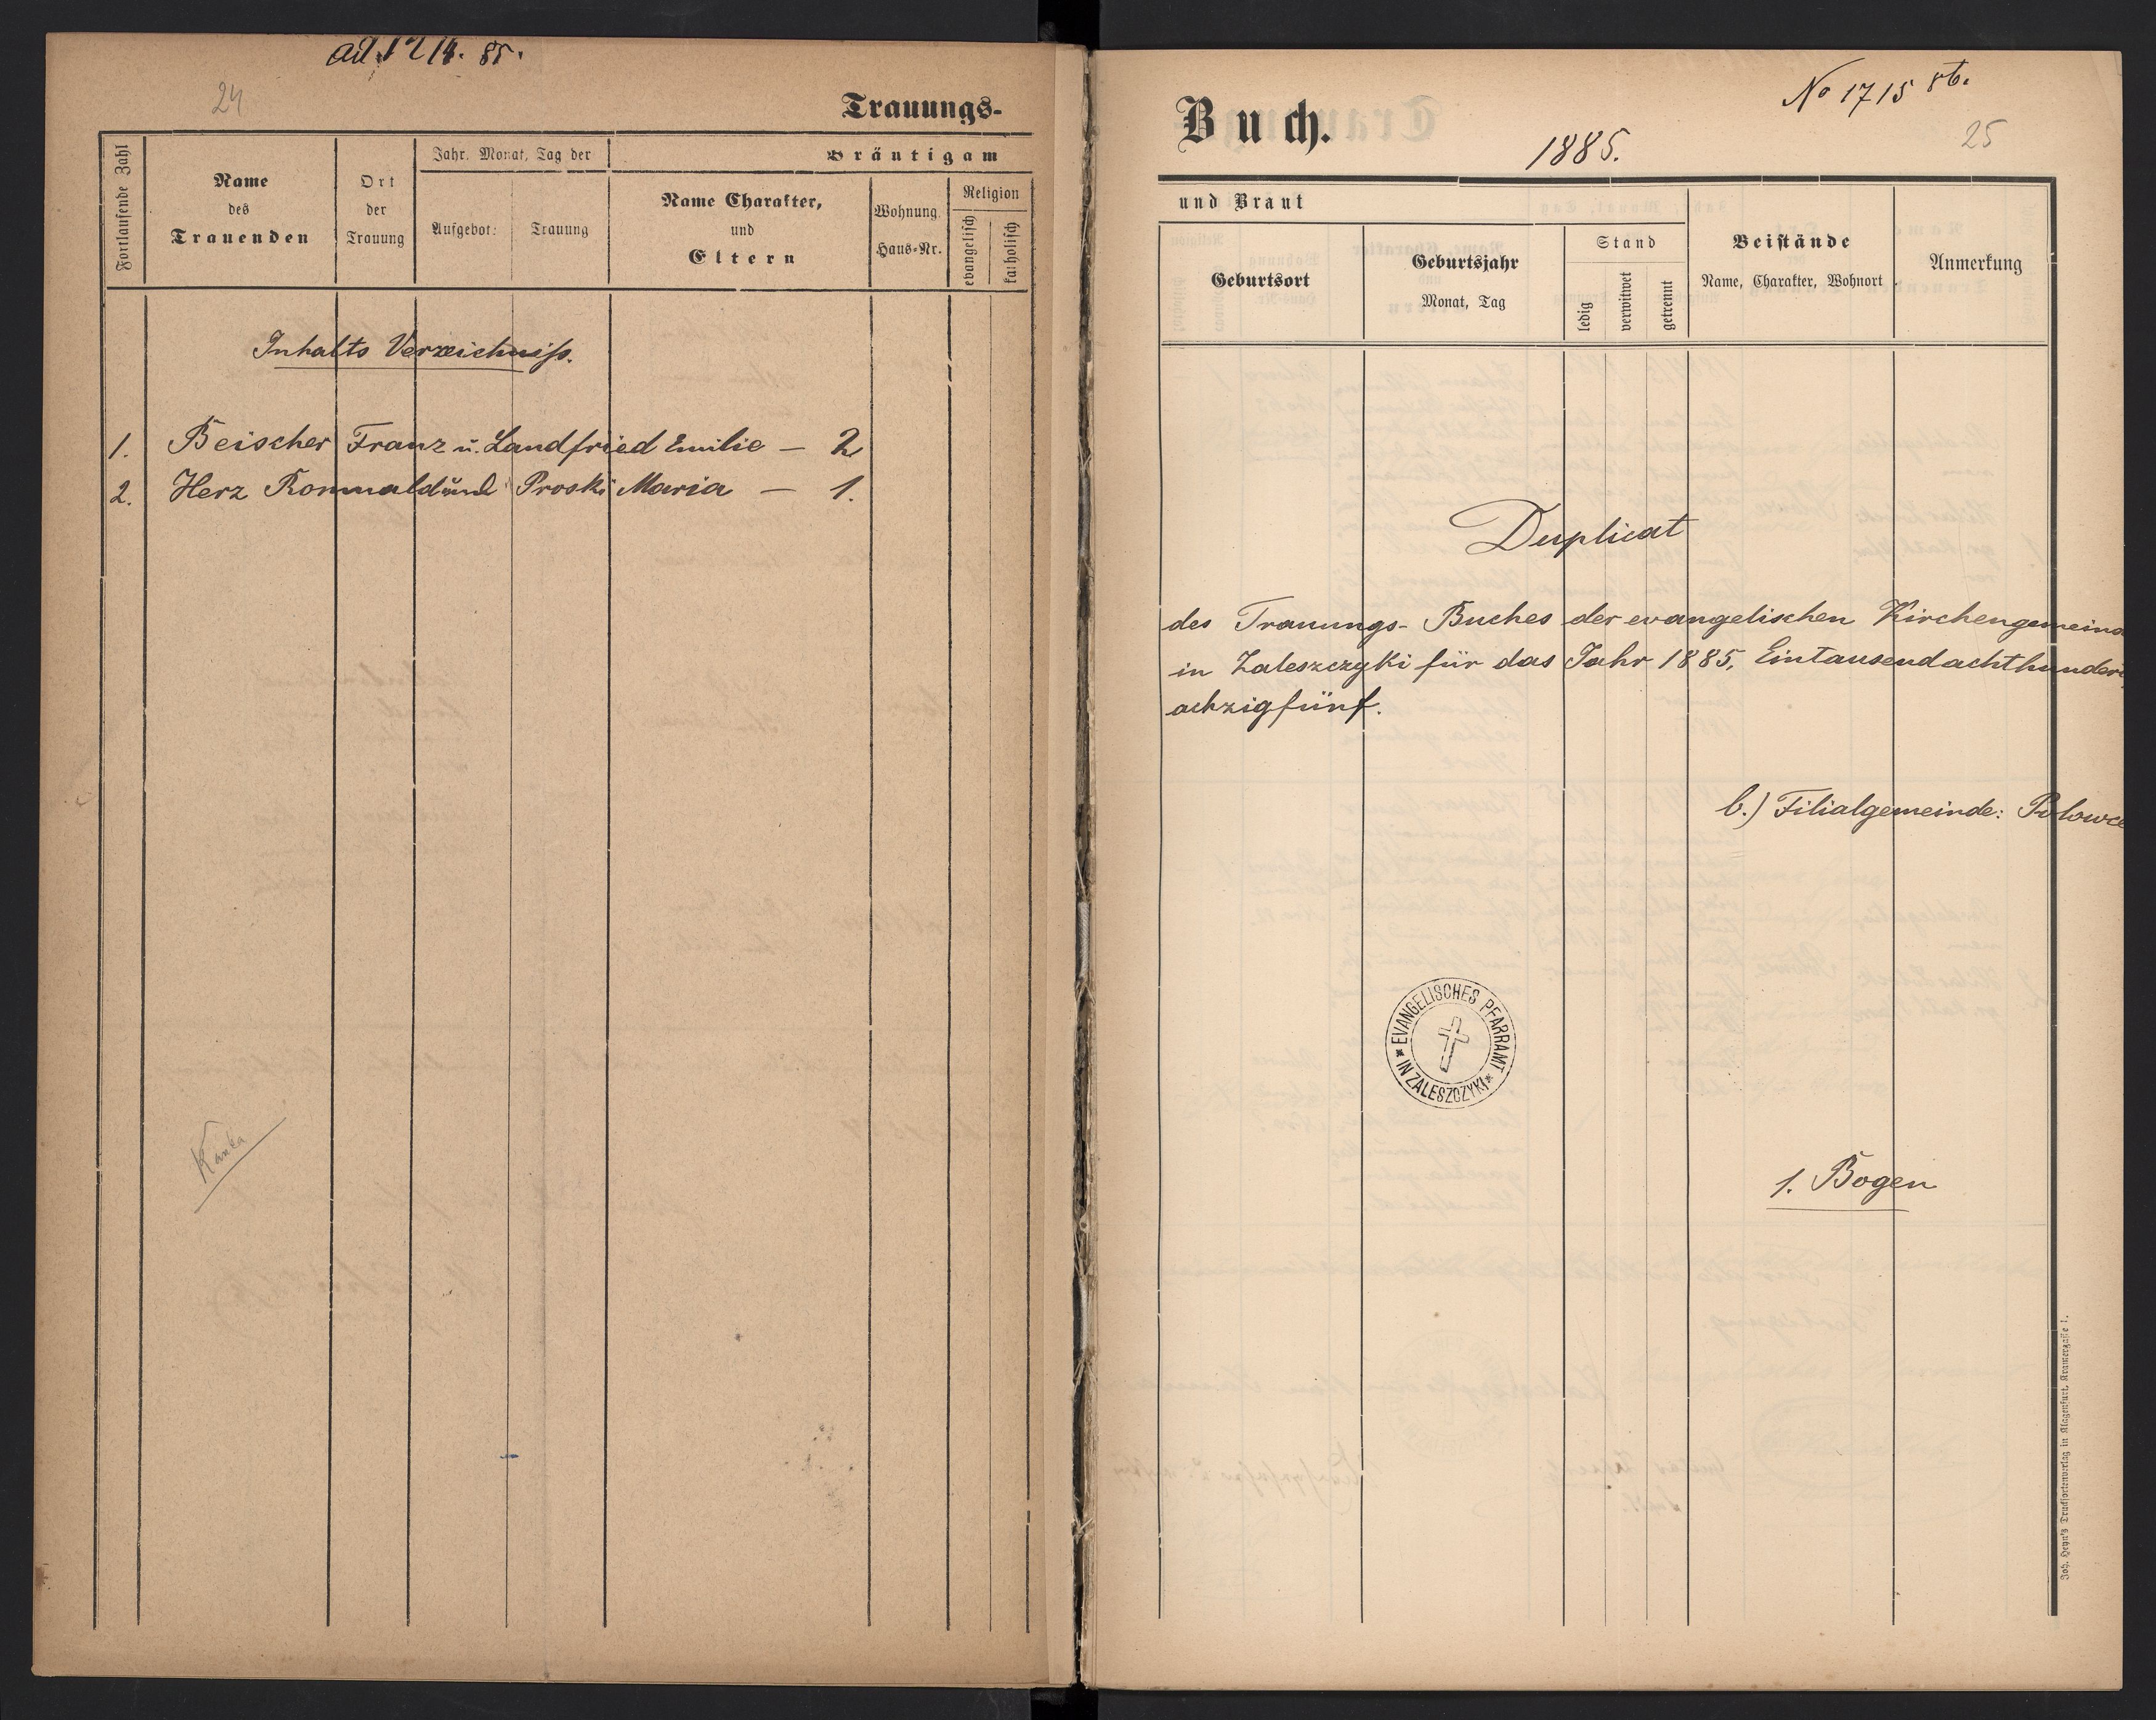 24
Trauungs-
Fortlaufende Zahl
Name
des
Trauenden
Ort
der
Trauung
Jahr, Monat, Tag der
Aufgebot:
Trauung
Bräutigam
Name Charakter,
und
Eltern
Wohnung
Haus-Nr.
Religion
evangelisch
katholisch
Inhalts Verzeichniss.
1. Beischer Franz u. Landfried Emilie — 2
2. Herz Romuald und Proski Maria — 1.
Buch.
No 1715 86.
25
1885.
und Braut
Geburtsort
Geburtsjahr
Monat, Tag
Stand
ledig
verwitwet
getrennt
Beistände
Name, Charakter, Wohnort
Anmerkung
Duplicat
des Trauungs-Buches der evangelischen Kirchengemeind
in Zaleszczyki für das Jahr 1885, Eintausendachthundert
achzigfünf.
b.) Filialgemeinde: Polowce
EVANGELISCHES PFARRAMT
* IN ZALESZCZYKI *
1. Bogen
Joh. Heyn's Drucksortenverlag in Klagenfurt, Kramergasse 1.